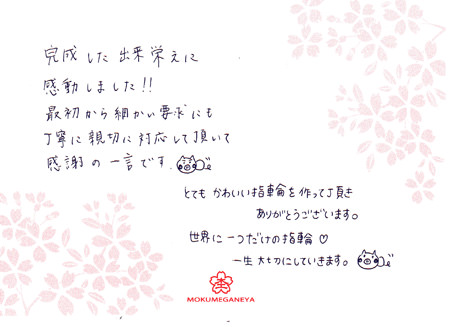 完成した出来栄えに
感動しました!!
最初から細かい要求にも
丁寧に親切に対応して頂いて
感謝の一言です
とても かわいい指輪を作って頂き
ありがとうございます。
世界に一つだけの指輪♡
一生大切にしていきます。
MOKUMEGANEYA